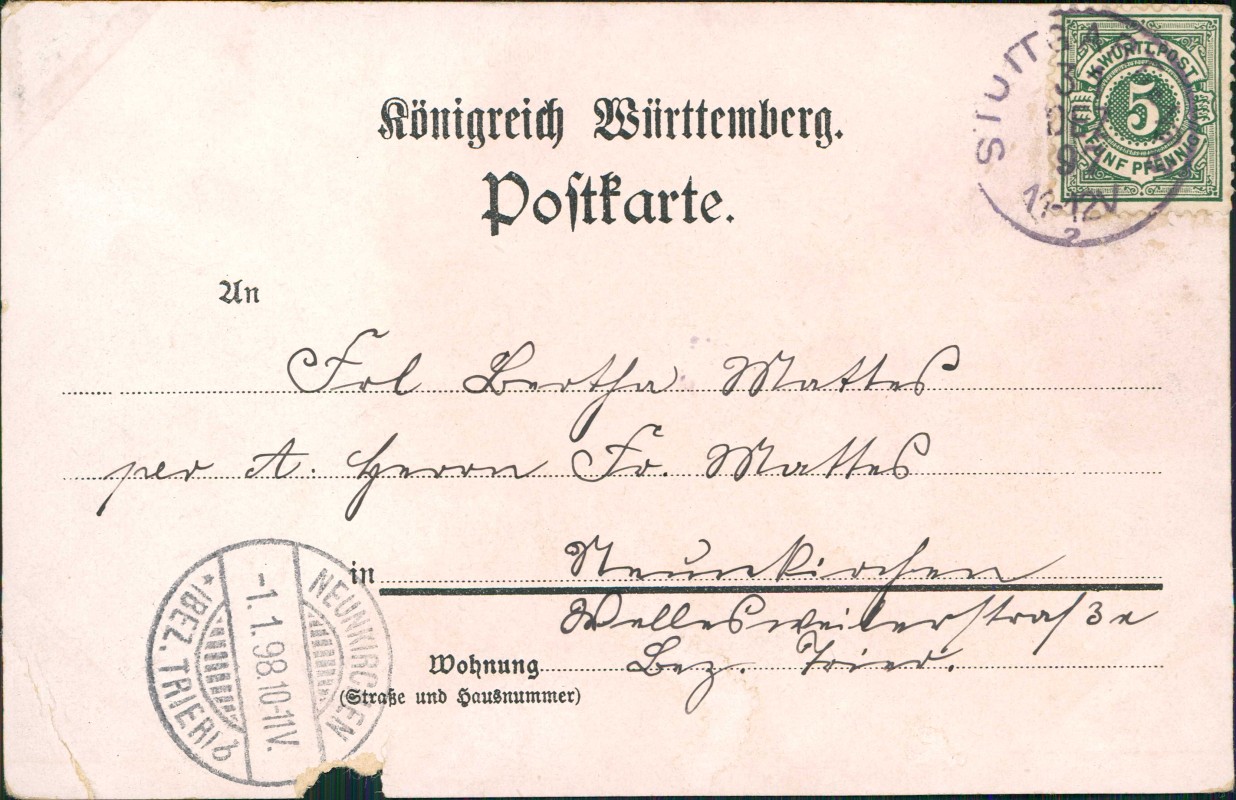 Königreich Württemberg.
Postkarte.
K. WÜRTT. POST
5
FÜNF PFENNIG
11-12V
2
An
Frl Bertha Mattes
per A. Herrn Fr. Mattes
in Neunkirchen
Wellesweilerstraße
Wohnung Bez. Trier.
(Straße und Hausnummer)
NEUNKIRCHEN
-1.1.98.10-11V.
*(BEZ. TRIER) b